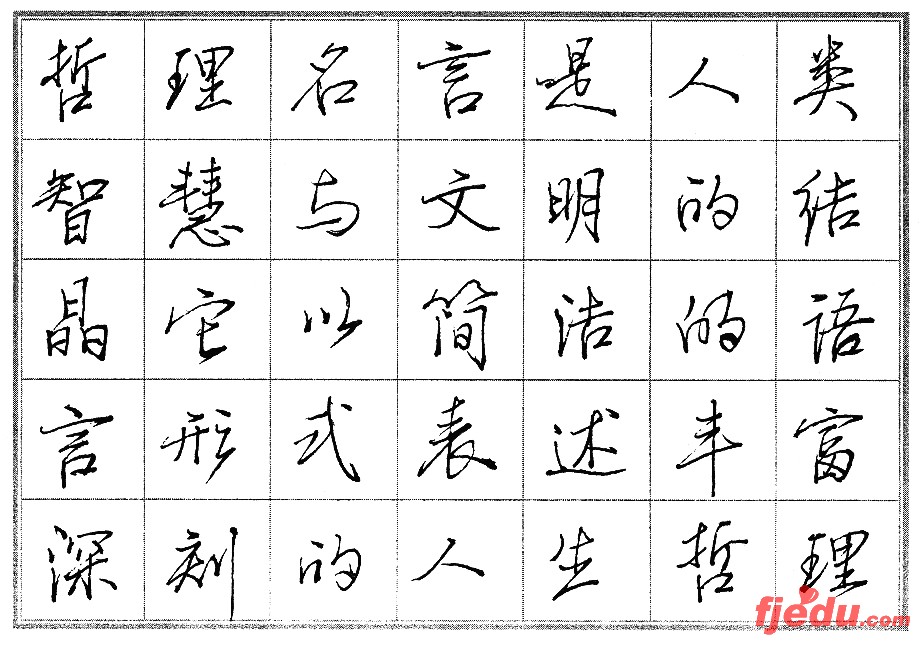 哲理名言是人类
智慧与文明的结
晶它以简洁的语
言形式表述丰富
深刻的人生哲理
fjedu.com